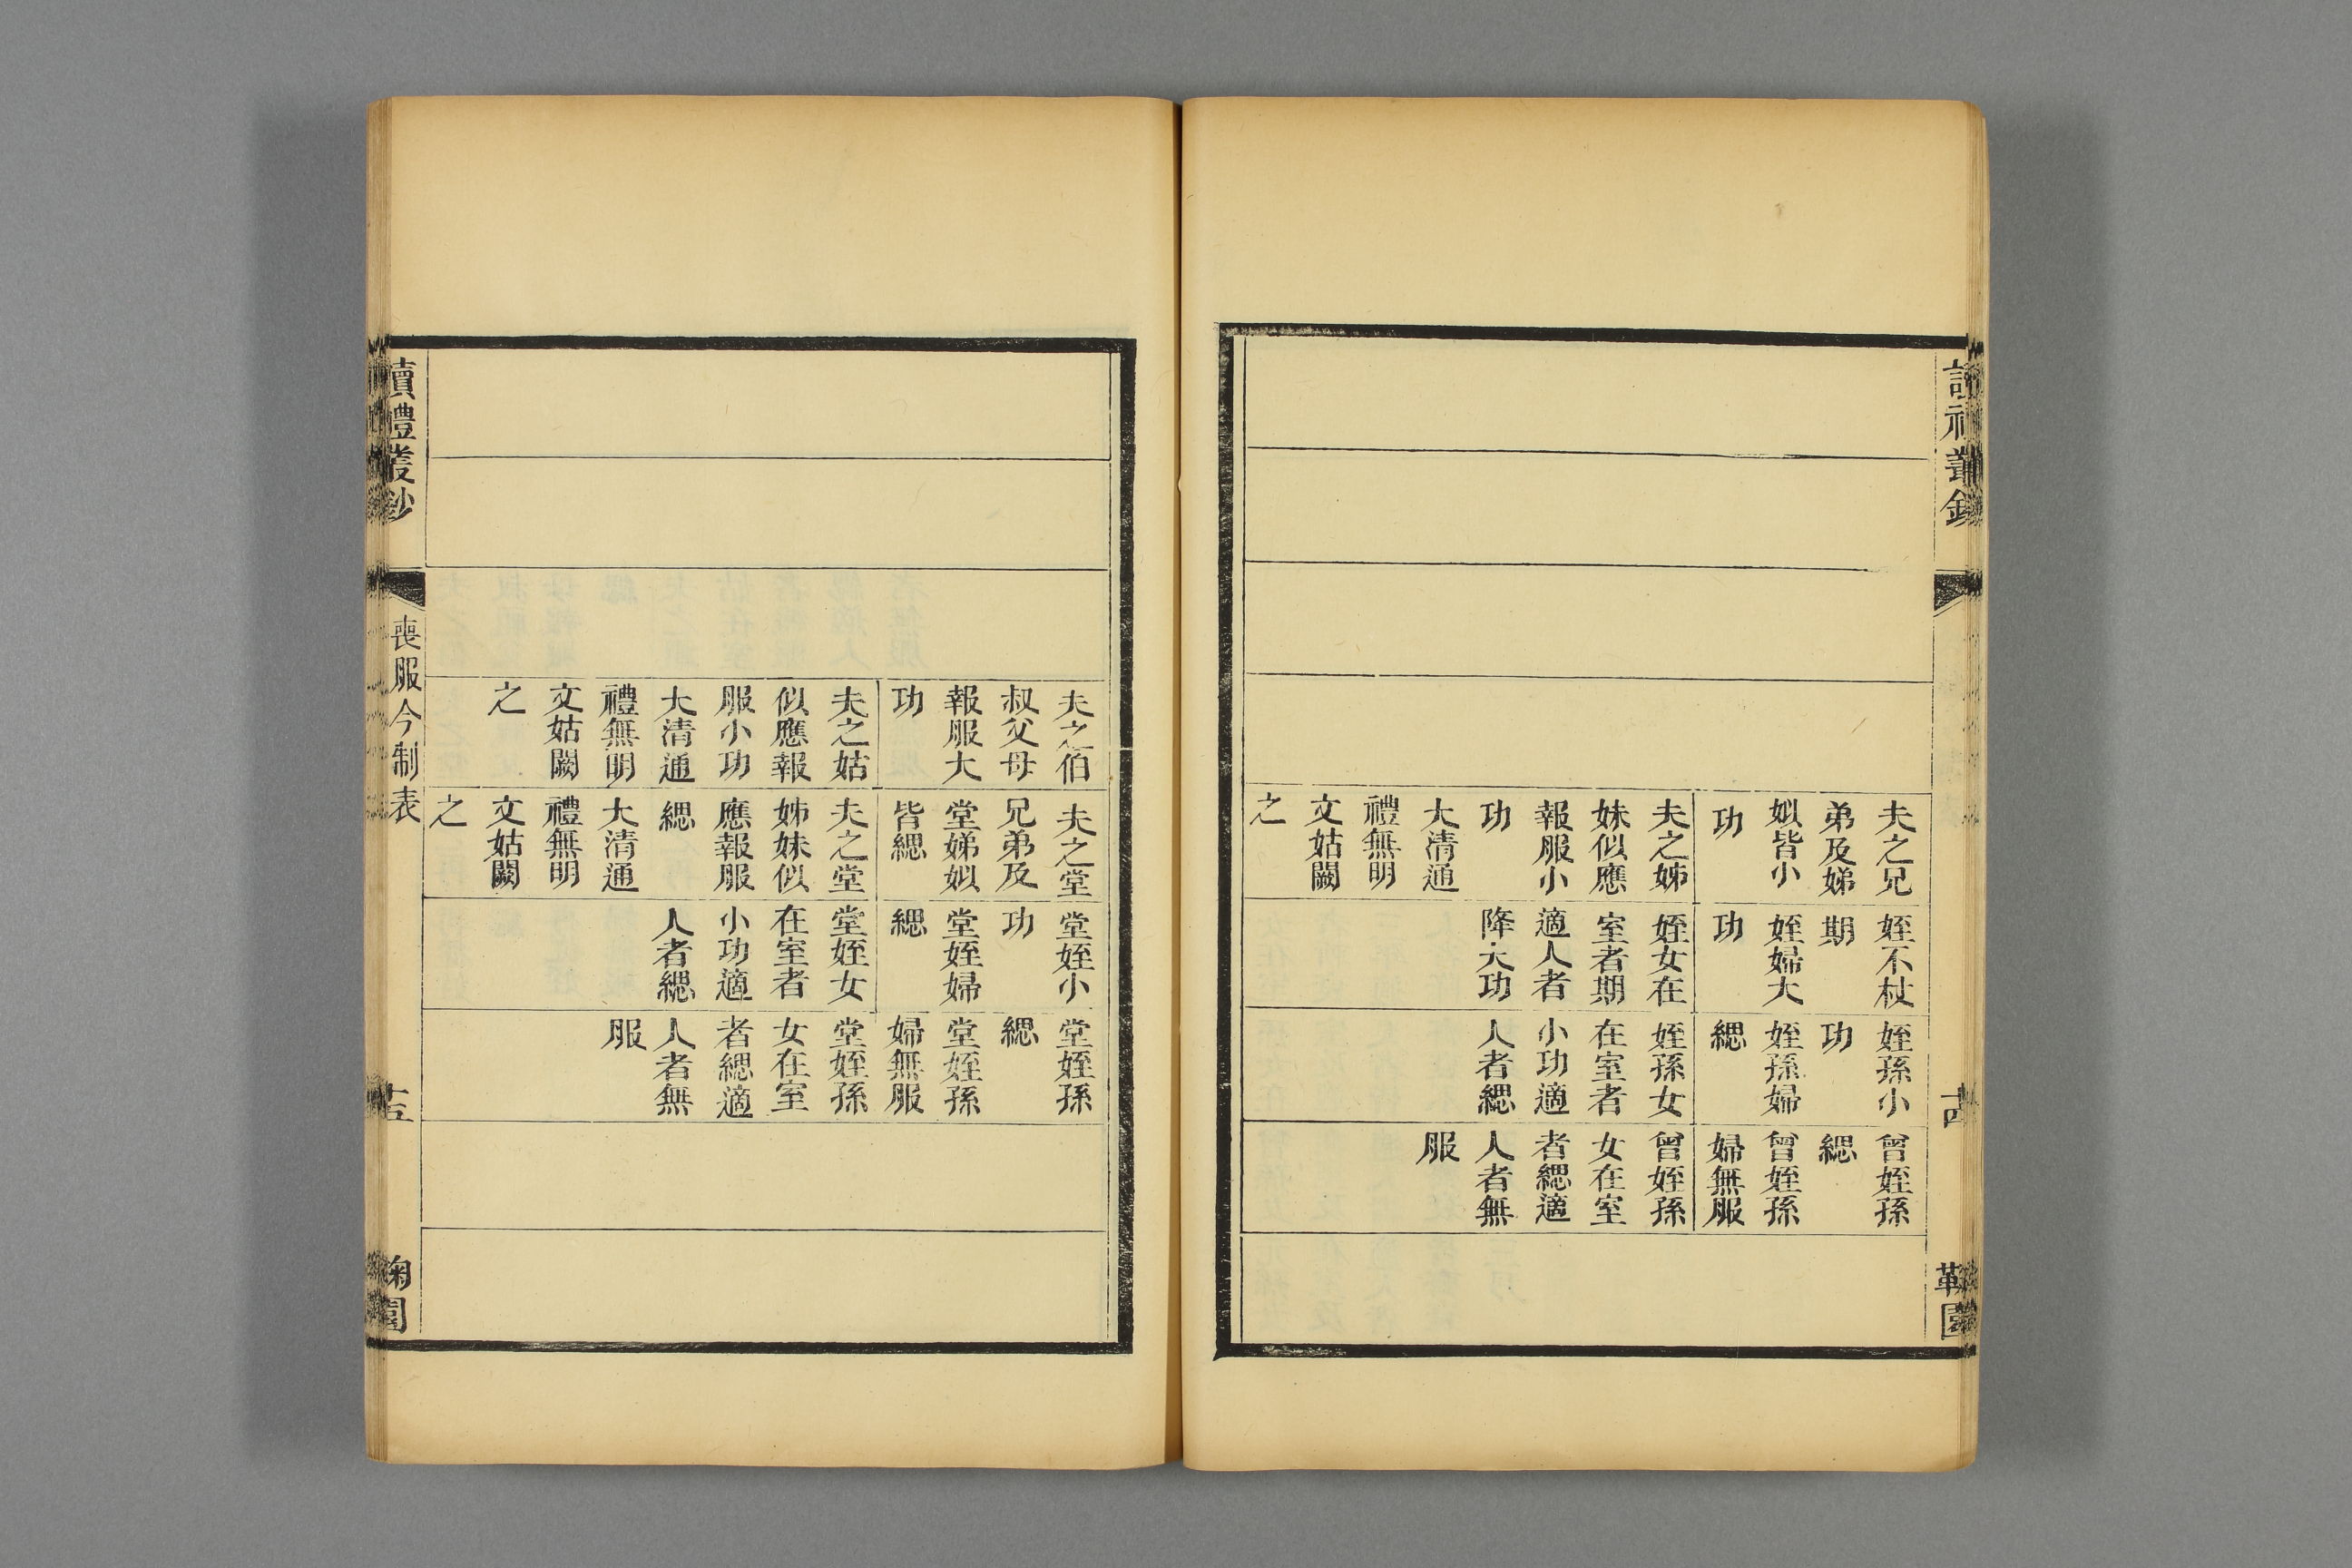 夫之兄
弟及娣
姒皆小
功
夫之姊
妹似應
報服小
功
大清通
禮無明
文姑闕
之
姪不杖
期
姪婦大
功
姪女在
室者期
適人者
降大功
姪孫小
功
姪孫婦
緦
姪孫女
在室者
小功適
人者緦
曾姪孫
緦
曾姪孫
婦無服
曾姪孫
女在室
者緦適
人者無
服
夫之伯
叔父母
報服大
功
夫之姑
似應報
服小功
大清通
禮無明
文姑闕
之
夫之堂
兄弟及
堂娣姒
皆緦
夫之堂
姊妹似
應報服
緦
大清通
禮無明
文姑闕
之
堂姪小
功
堂姪婦
緦
堂姪女
在室者
小功適
人者緦
堂姪孫
緦
堂姪孫
婦無服
堂姪孫
女在室
者緦適
人者無
服
讀禮叢鈔
喪服今制表
十五
鞠園